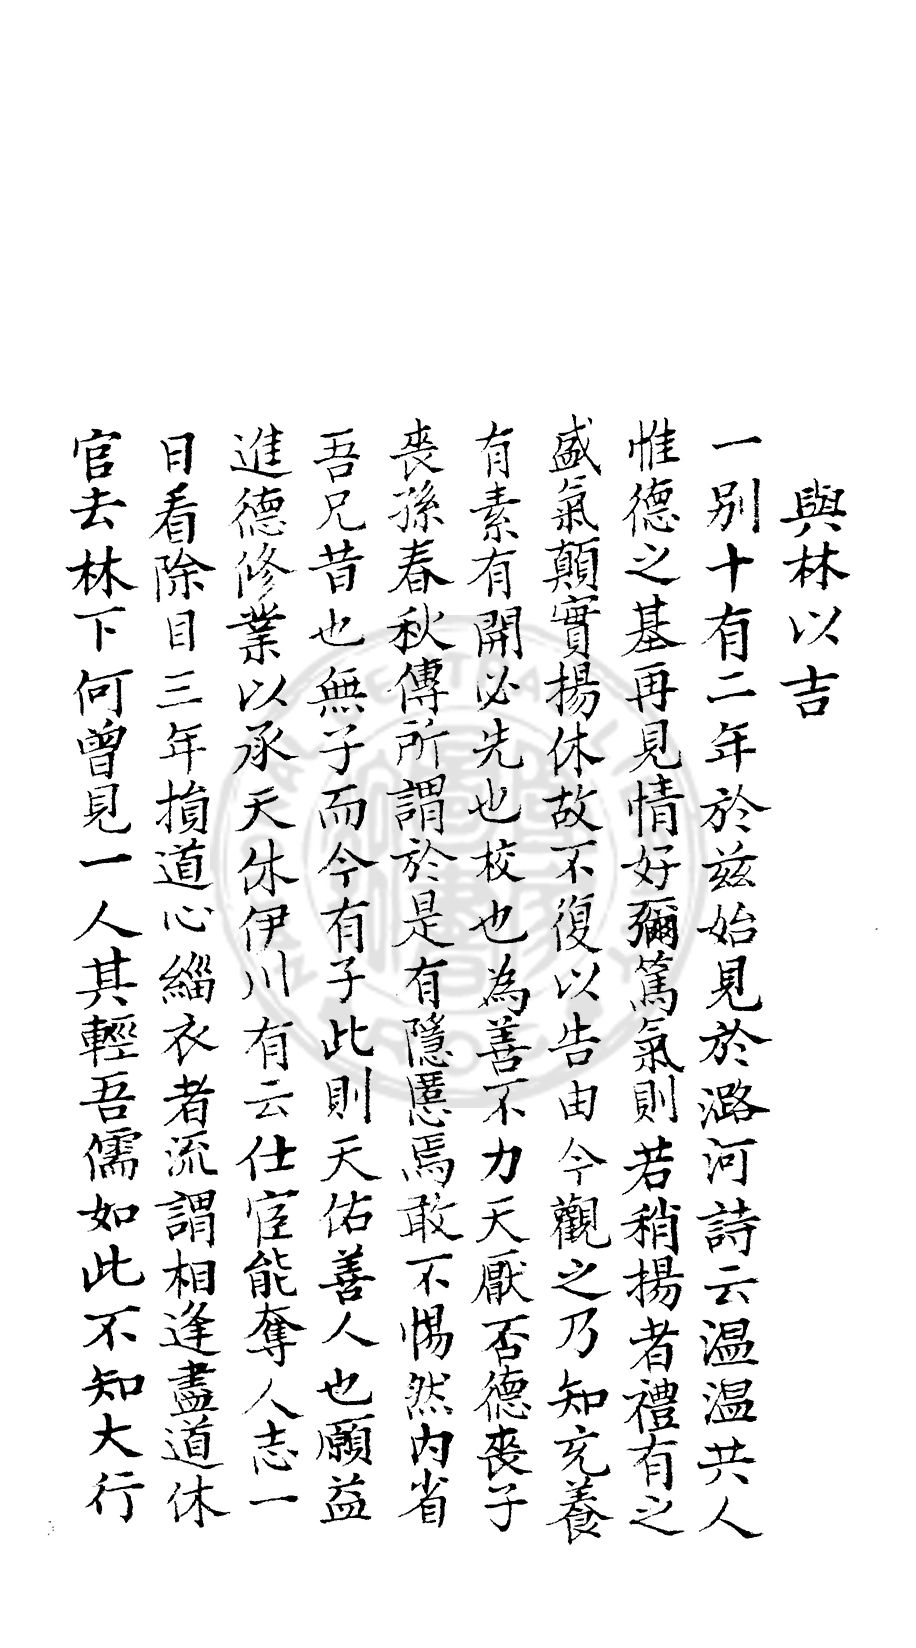 與林以吉
一別十有二年於茲始見於潞河詩云温温共人
惟德之基再見情好彌篤氣則若稍揚者禮有之
盛氣顛實揚休故不復以告由今觀之乃知充養
有素有開必先也校也為善不力天厭否德喪子
喪孫春秋傳所謂於是有隱慝焉敢不惕然内省
吾兄昔也無子而今有子此則天佑善人也願益
進德修業以承天休伊川有云仕宦能奪人志一
日看除目三年損道心緇衣者流謂相逢盡道休
官去林下何曾見一人其輕吾儒如此不知大行